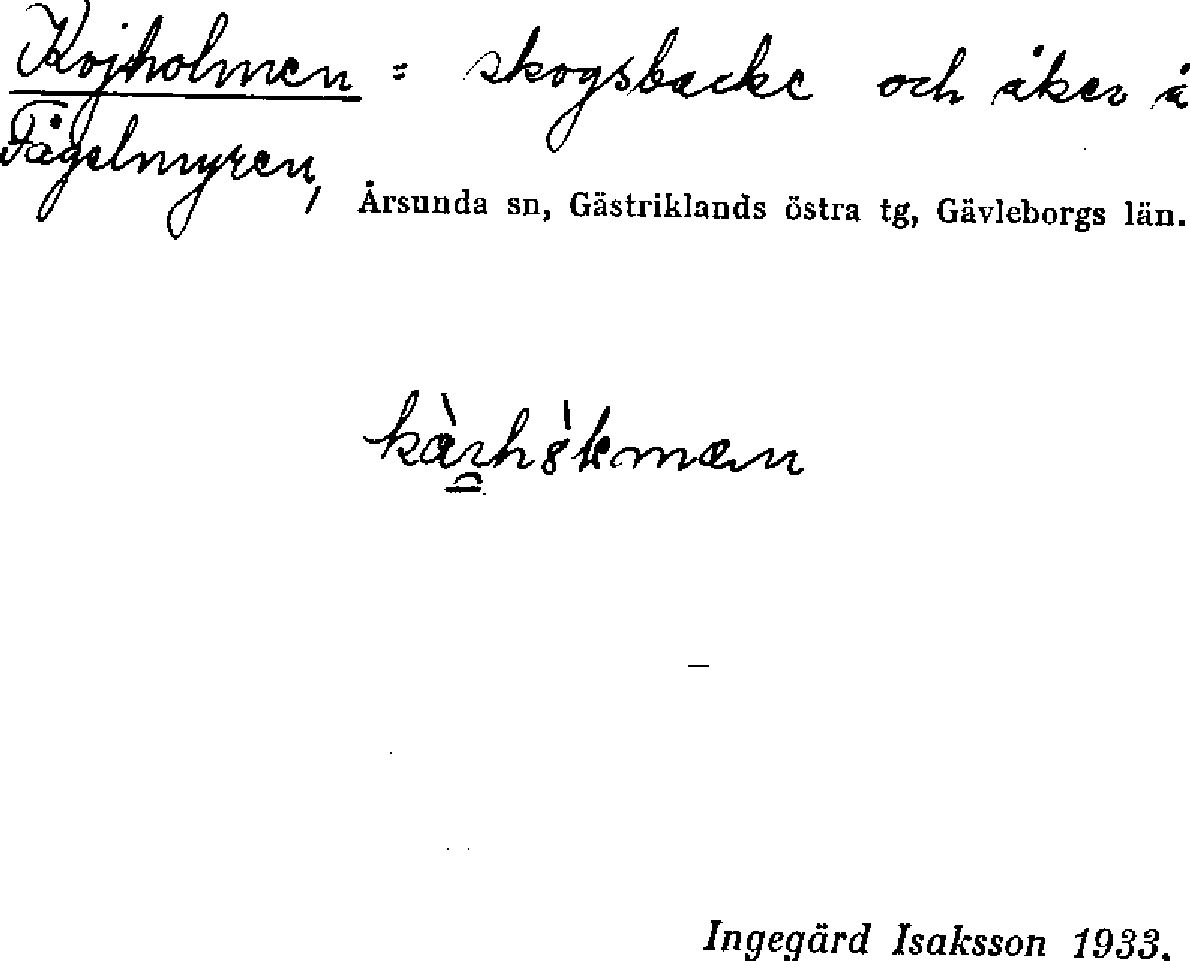 Kojholmen = skogsbacke och åker å
Fågelmyren,
Årsunda sn, Gästriklands östra tg, Gävleborgs län.
Ingegärd Isaksson 1933.